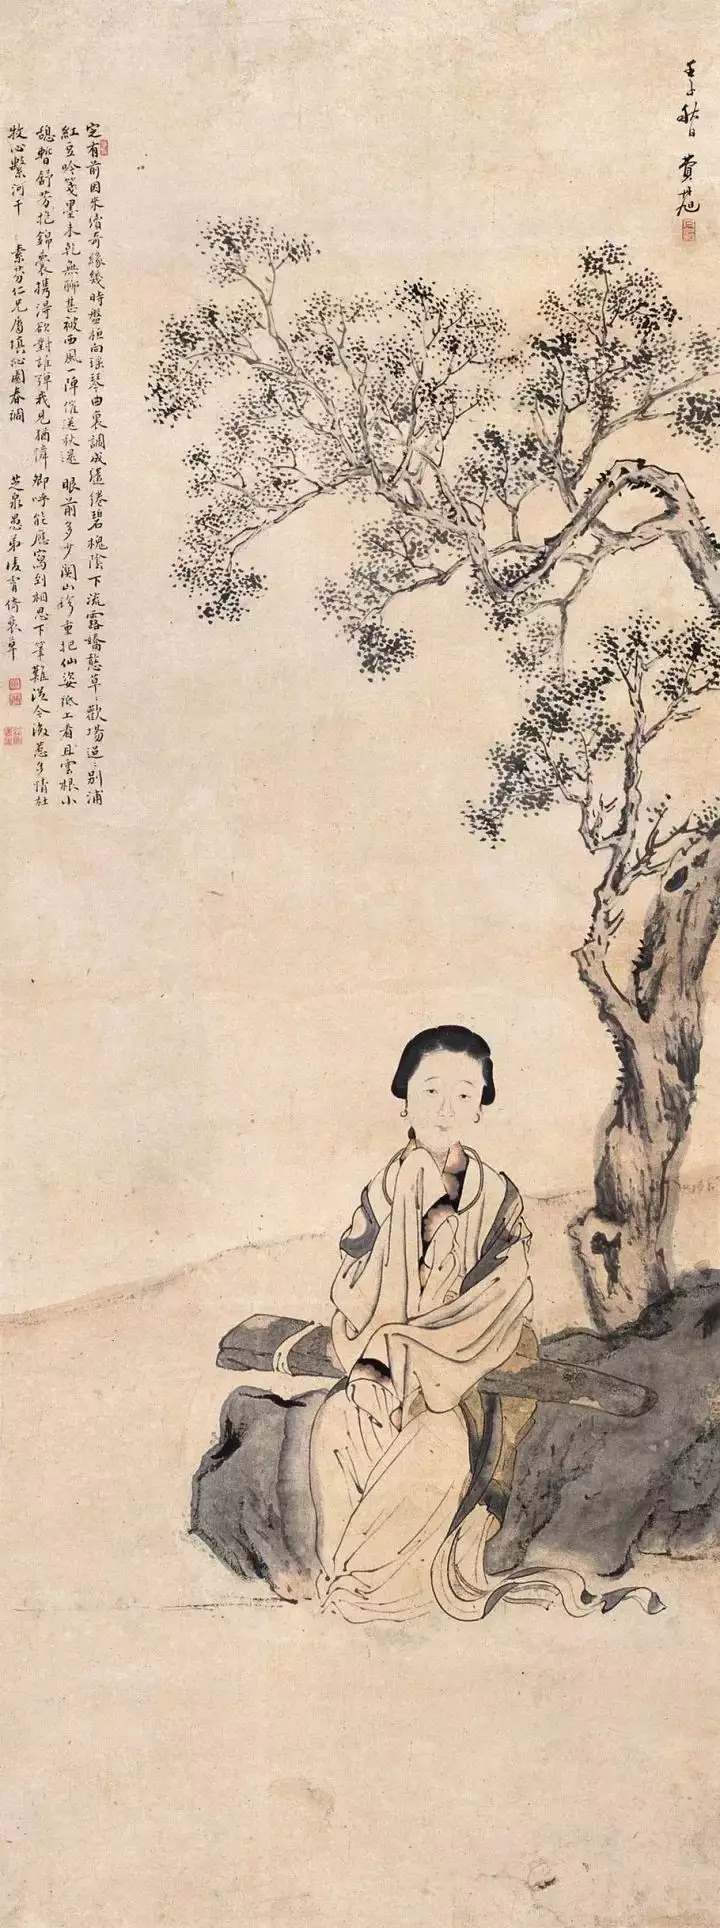 壬子秋日 費丹旭
定有前因未續奇緣幾時盤桓向瑤琴曲裏調成繾綣碧槐陰下流露嬌憨草〻歡場迢〻別浦
紅豆吟箋墨未乾無聊甚被西風一陣催送秋還 眼前多少關山珍重把仙姿紙上看且雲根小
憩暫舒芳抱錦囊攜得欲對誰彈我見猶憐卿呼能應寫到相思下筆難從今後惹多情杜
牧心繫河干 素芬仁兄屬填沁園春調 芝泉愚弟凌霄倚裝草